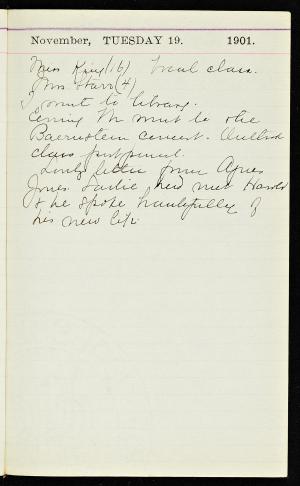 November, TUESDAY 19. 1901.
Miss King (16) class.
Mrs Starr (4)
I went to library.
Evening M went to the
Baernstein concert.
class postponed.
Lovely letter from Agnes
Jones. had met Harold
& he spoke beautifully of
his new life.